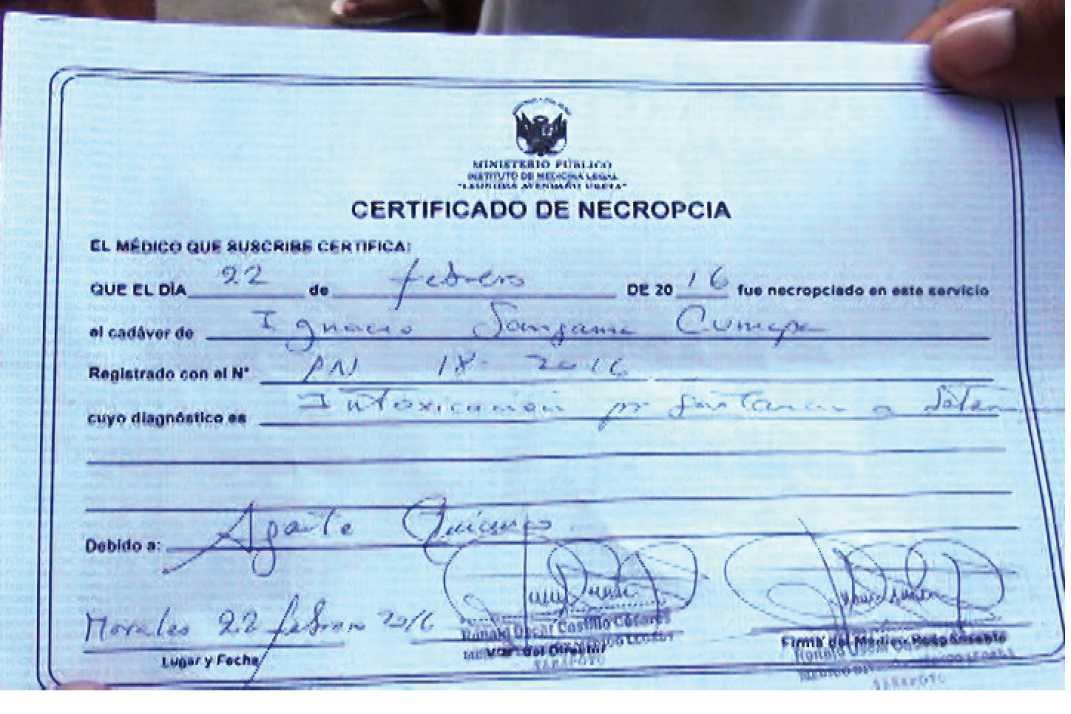 MINISTERIO PÚBLICO
INSTITUTO DE MEDICINA LEGAL
"LEONIDAS AVENDAÑO URETA"
CERTIFICADO DE NECROPCIA
EL MÉDICO QUE SUSCRIBE CERTIFICA:
QUE EL DÍA 22 de febrero DE 2016 fue necropciado en este servicio
el cadáver de Ignacio Sangama Cumapa
Registrado con el N° 18-2016
cuyo diagnóstico es Intoxicación por sustancia a
Debido a: Agente Químico
Morales 22 febrero 2016
Lugar y Fecha
Ronald Oscar Castillo Cosares
V°B° del Director
TARAPOTO
Firma del Médico Responsable
Ronald Oscar
TARAPOTO